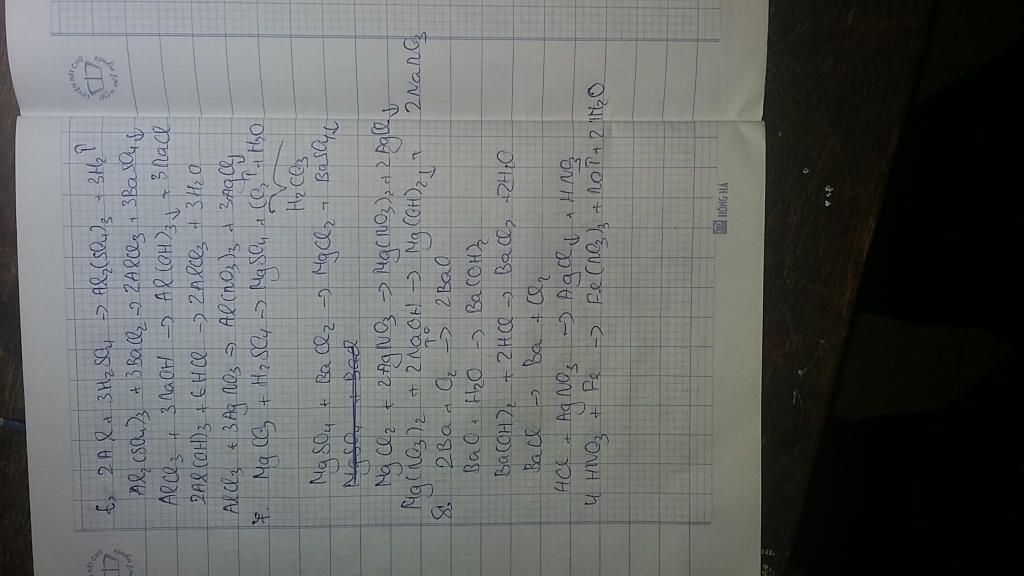 6, 2Al + 3H2SO4 → Al2(SO4)3 + 3H2↑
Al2(SO4)3 + 3BaCl2 → 2AlCl3 + 3BaSO4↓
AlCl3 + 3NaOH → Al(OH)3↓ + 3NaCl
2Al(OH)3 + 6HCl → 2AlCl3 + 3H2O
AlCl3 + 3AgNO3 → Al(NO3)3 + 3AgCl↓
7. MgCO3 + H2SO4 → MgSO4 + CO2↑ + H2O
H2CO3
MgSO4 + BaCl2 → MgCl2 + BaSO4↓
MgCl2 + 2AgNO3 → Mg(NO3)2 + 2AgCl↓
Mg(NO3)2 + 2NaOH → Mg(OH)2↓ + 2NaNO3
8. 2Ba + O2 →to 2BaO
BaO + H2O → Ba(OH)2
Ba(OH)2 + 2HCl → BaCl2 + 2H2O
BaCl2 → Ba + Cl2
HCl + AgNO3 → AgCl↓ + HNO3
4HNO3 + Fe → Fe(NO3)3 + NO↑ + 2H2O
HỒNG HÀ